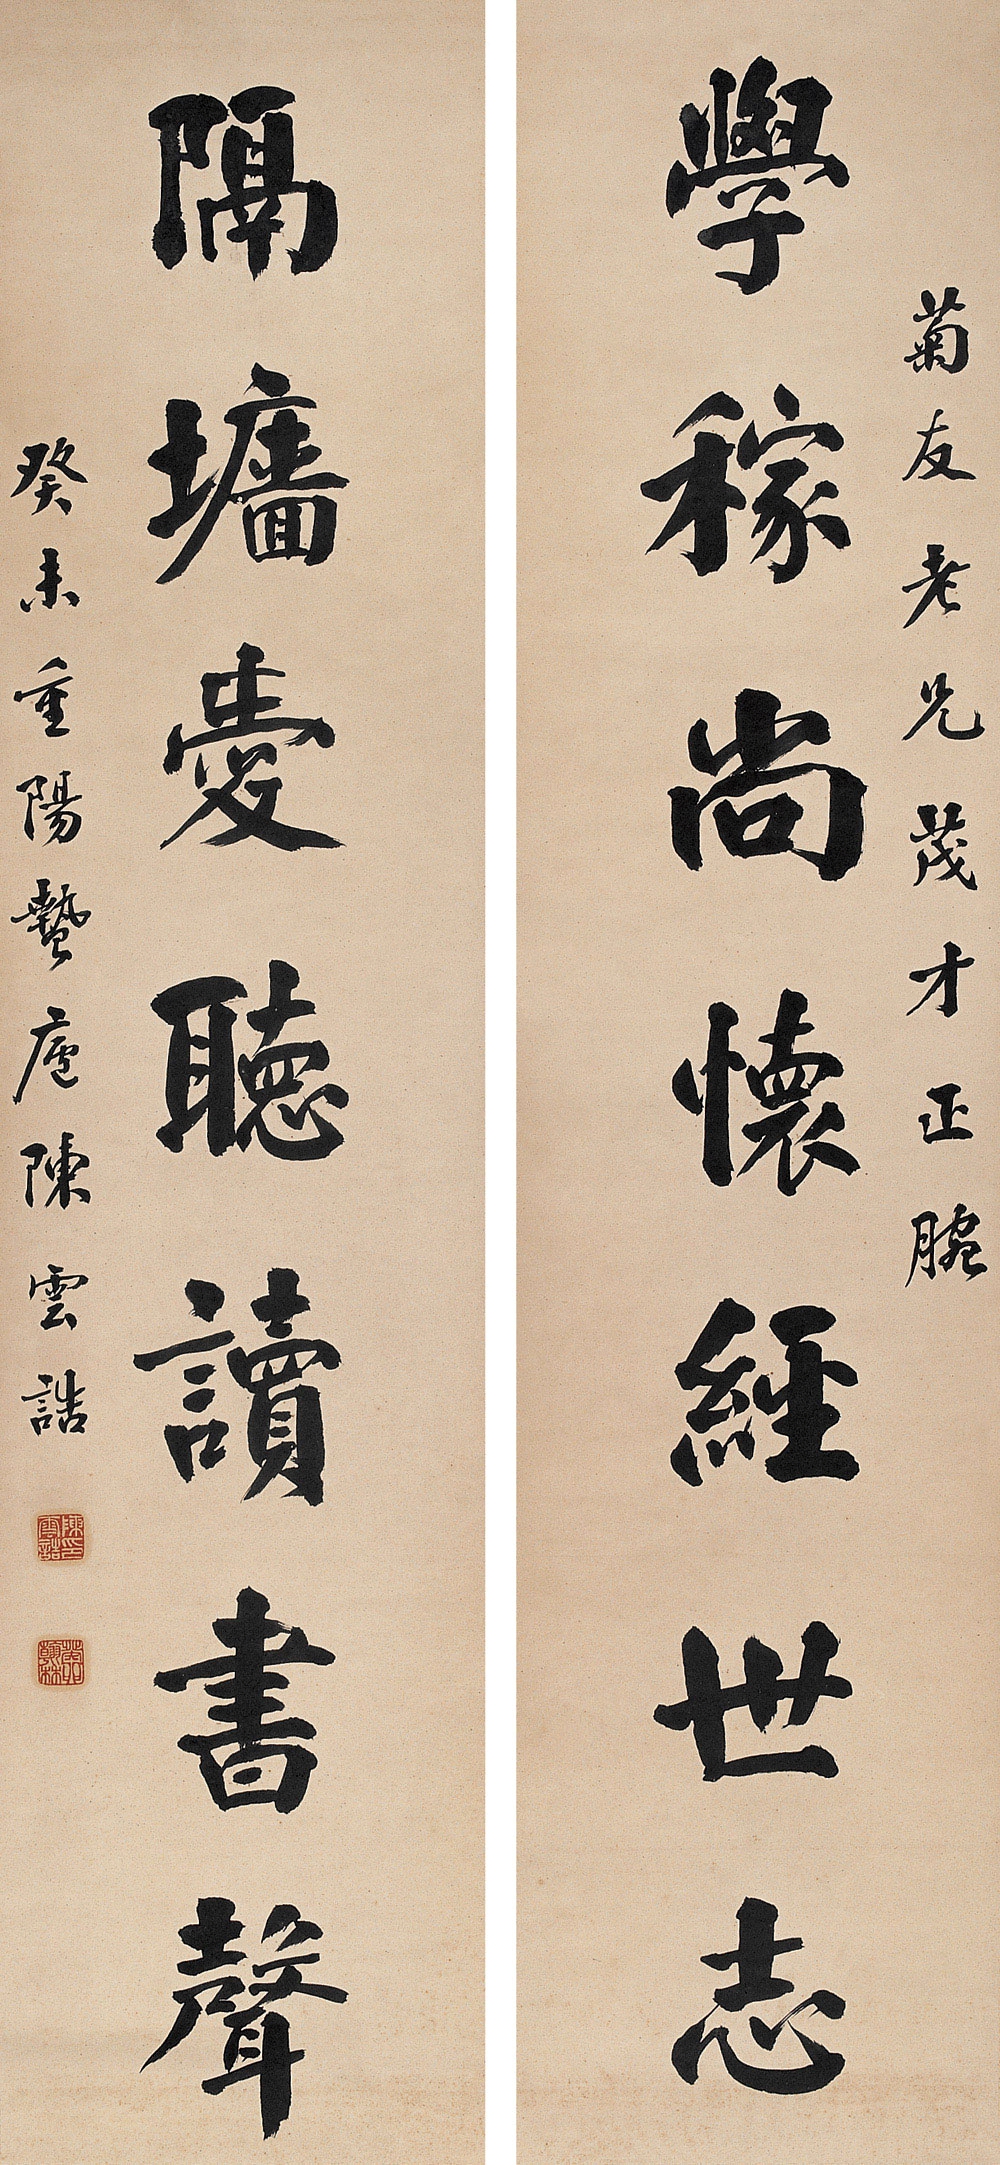 菊友老兄茂才正腕
學稼尚懷經世志
隔墻愛聽讀書聲
癸未重陽蟄廬陳雲誥
陳印雲誥